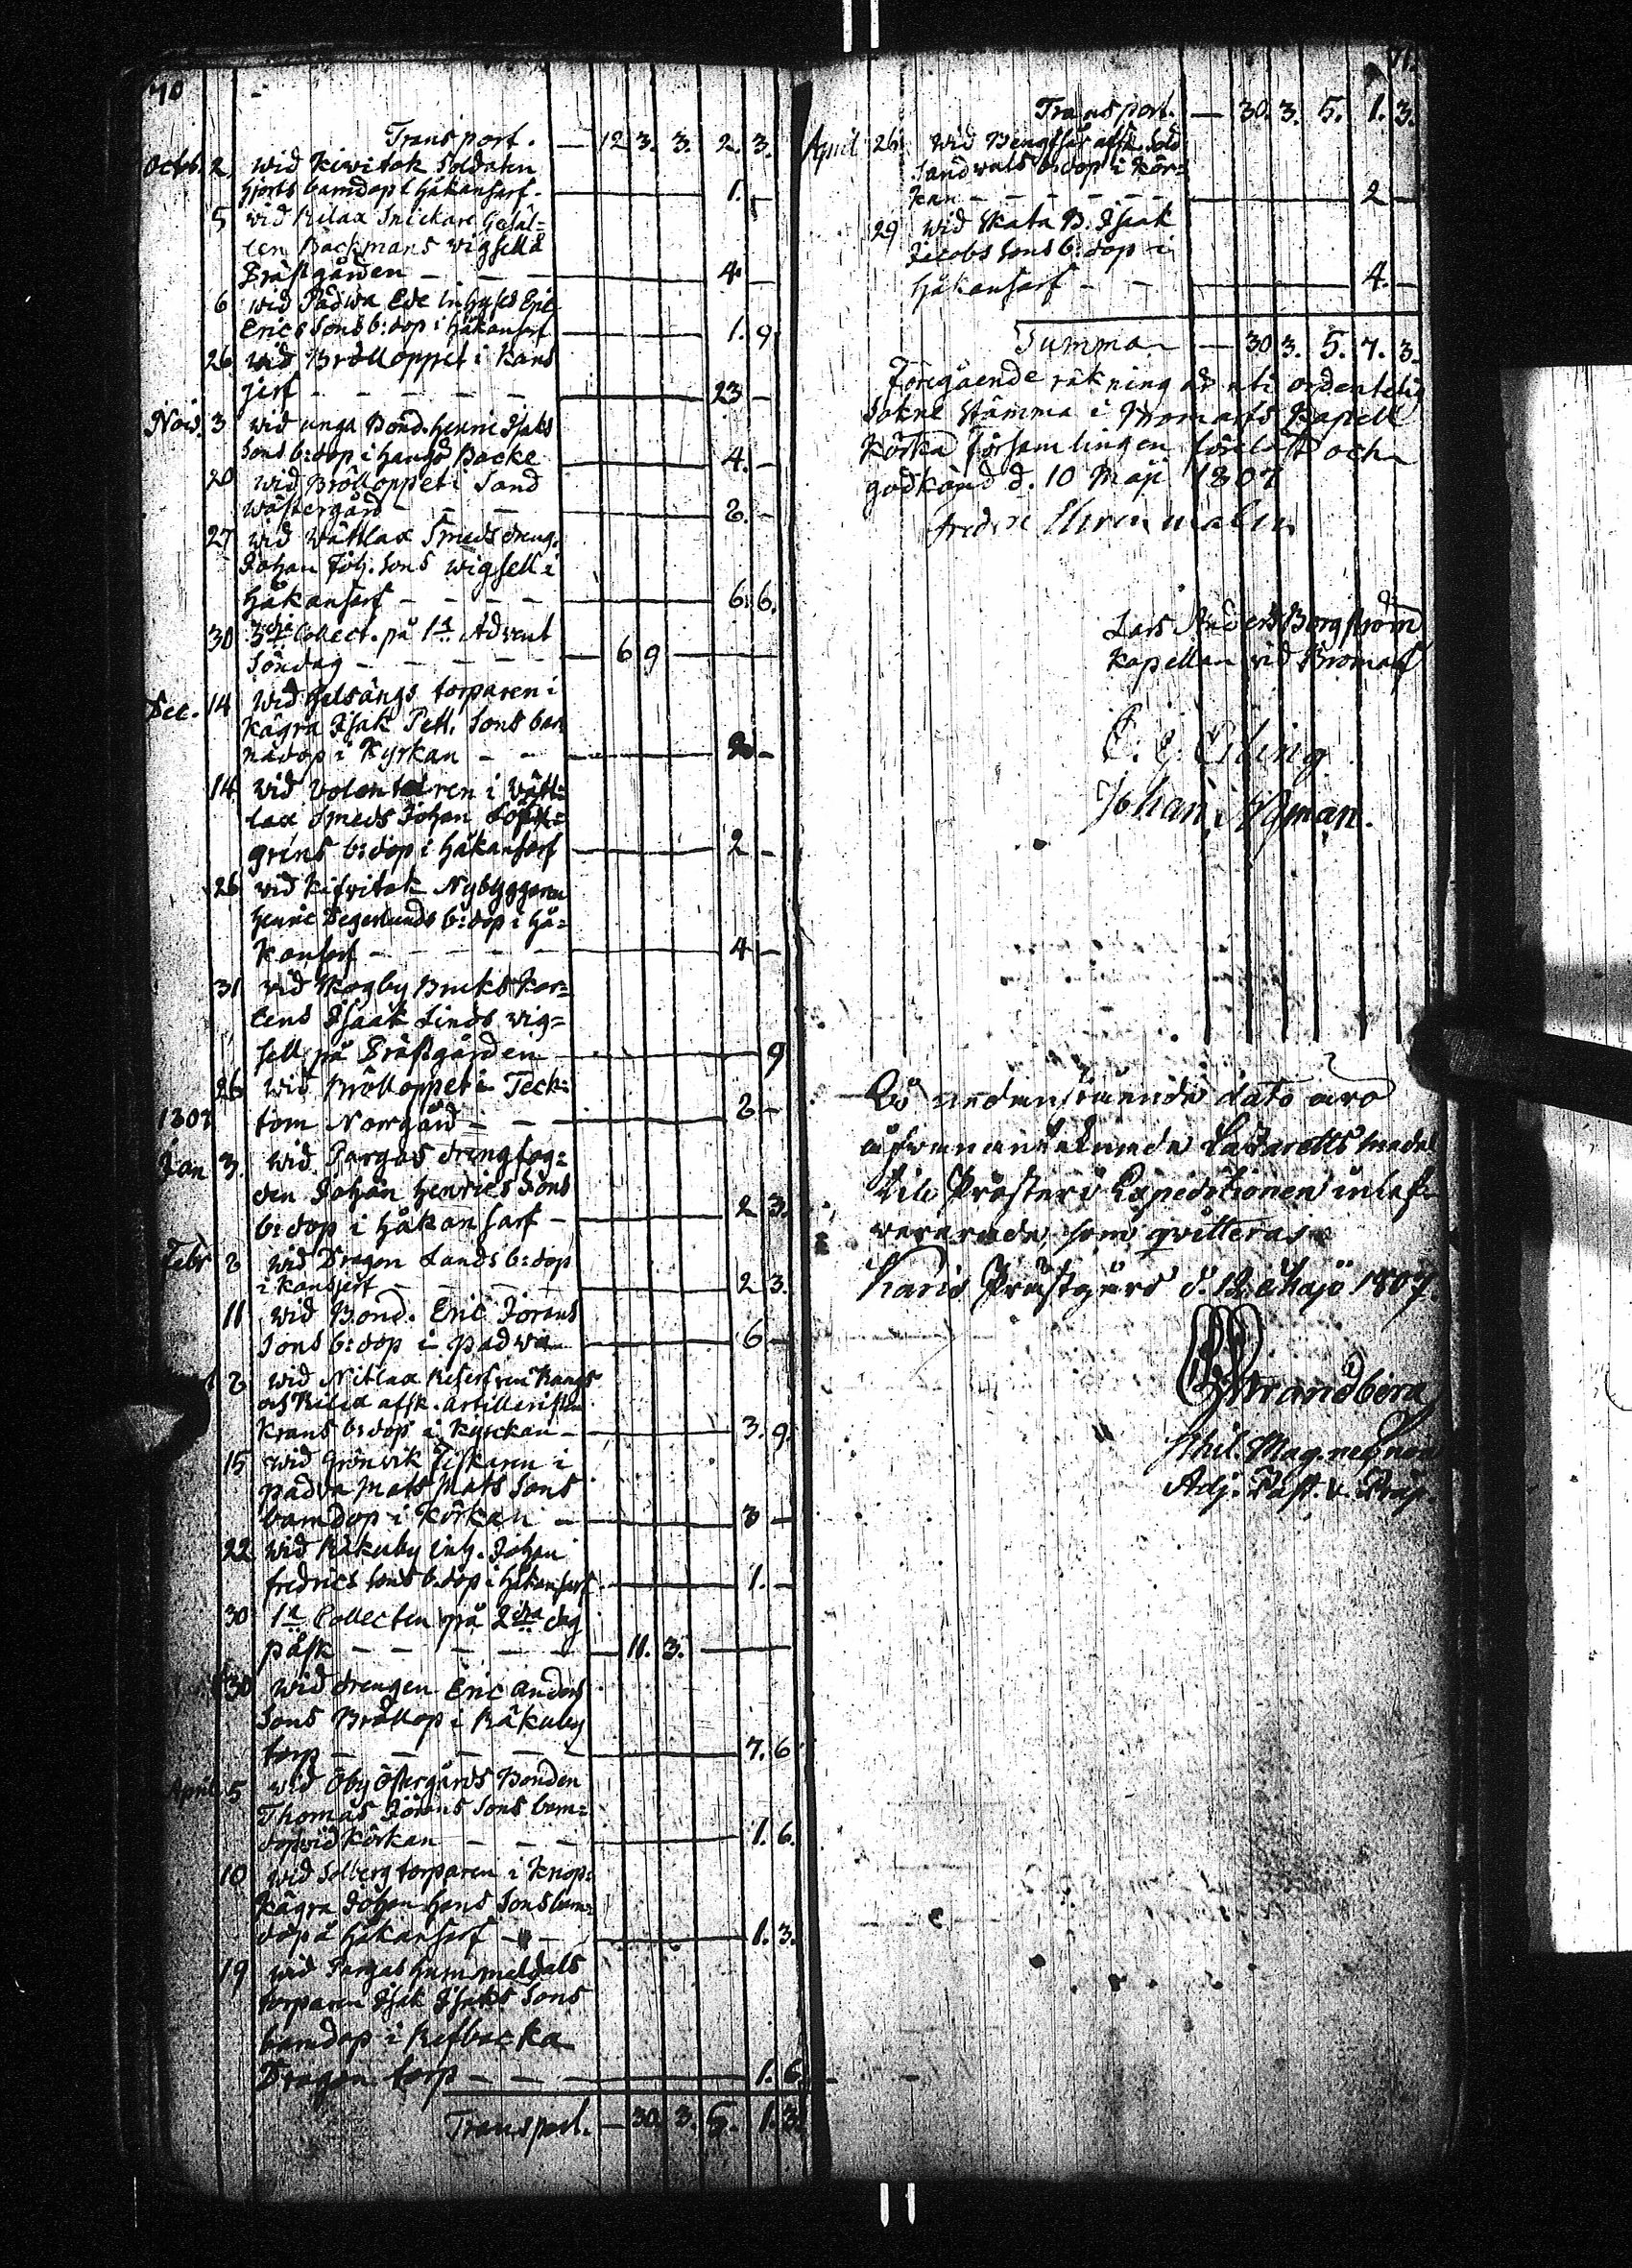 70
Transport. — 12 3. 3. 2. 3.
Octob. 2. wid Kiwitok Soldaten
hjorts barndop i Håkansarf. — 1. —
5 wid Rilax Snickare Gesäl=
len Bäckmans wigsell å
Prästgården — — — 4. —
6 wid Padwa Ede Inhyses Eric
Erics Sons b:dop i Håkansarf — 1. 9.
26. wid Brölloppet i Kans
jerf — — — — — 23 —
Nov. 3 wid unga Bond. Henric Isaks
Sons b:dop i Hangö Backe — 4. —
20 wid Brölloppet i Sand
wästergård — — — 2. —
27 wid Wättlax Smeds dreng.
Johan Joh. Sons wigsell i
Håkansarf — — — — 6. 6.
30 Collect. på 1st Advent
Söndag — — — — — 6 9 —
Dec. 14 wid Helsängs torparen i
Kägra Isak Pett. Sons bar
nadop i Kyrkan — — —
14. wid Volontairen i Wätt=
lax Smeds Johan
grens b:dop i Håkansarf — 2 —
26 wid Kifvitok Nybyggaren
Henric Degerlunds b:dop i Hå=
kansarf — — — — — 4 —
31 wid Skogby Bruks Kar=
lens Isaak Linds wig=
sell på Prästgården — 9
26 wid Brölloppet i Teck=
1807 tom Norrgård — — — 2 —
Jan 3. wid Pargas drengfog=
den Johan Henrics Sons
b:dop i Håkansarf — 2 3.
Febr 2 wid Dragon Lands b:dop
i Kansjerf — — — 2 3.
11 wid Bond. Eric Jörans
Sons b:dop i Padwa — 6 —
wid Nitlax Reserven Rangs
och Rilax afsk. Artilleristen
Krans b:dop i Kyrckan — 3. 9.
15 wid Grönvik Fiskaren i
Padva Mats Mats Sons
barndop i Körkan — 3 —
22 wid Räkuby Inh. Johan
Fredrics Sons b:dop i Håkansarf — 1. —
30 1a Collecten på 2dra dag
påsk — — — — — 11. 3. —
30 wid drengen Eric Anders
Sons Bröllop i Räkuby
torp — — — — — 7. 6
April 5 wid Öby Östergårds Bonden
Thomas Jörans Sons barn=
dop wid Körkan — — — 1. 6.
10 wid Solberg torparen i Knop=
Kägra Johan Hans Sons barn=
dop å Håkansarf — — 1. 3.
19 wid Pargas Hummeldals
torparen Isak Isaks Sons
barndop i Refbacka
Dragon torp — — — 1. 6.
Transport. — 30. 3. 5. 1. 3.
71.
Transport. — 30. 3. 5. 1. 3.
April 26 wid Bengtsår afsk. Sold.
Sandwals b:dop i Kör=
kan — — — — 2 —
29 wid Skata B. Isaak
Jacobs Sons b:dop i
Håkansarf — — 4. —
Summa — 30 3. 5. 7. 3.
Föregående räkning är uti ordentelig
Sokne Stämma i Bromarfs Kapell
Körka församlingen föreläst och
godkänd d. 10 Maji 1807
Lars Anders Bergström
Kapellan vid Bromarf
Johan Nyman.
På nedanskrefvne dato äro
ofvannämnde Lazaretts medel
till Prosteri Expeditionen inlef=
vererade, som qvitteras
Karis Prästgård d. 12 Maji 1807.
Strandberg
Phil. Mag.
Adj. Past. v. Præp.